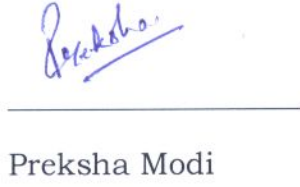 Preksha.
Preksha Modi